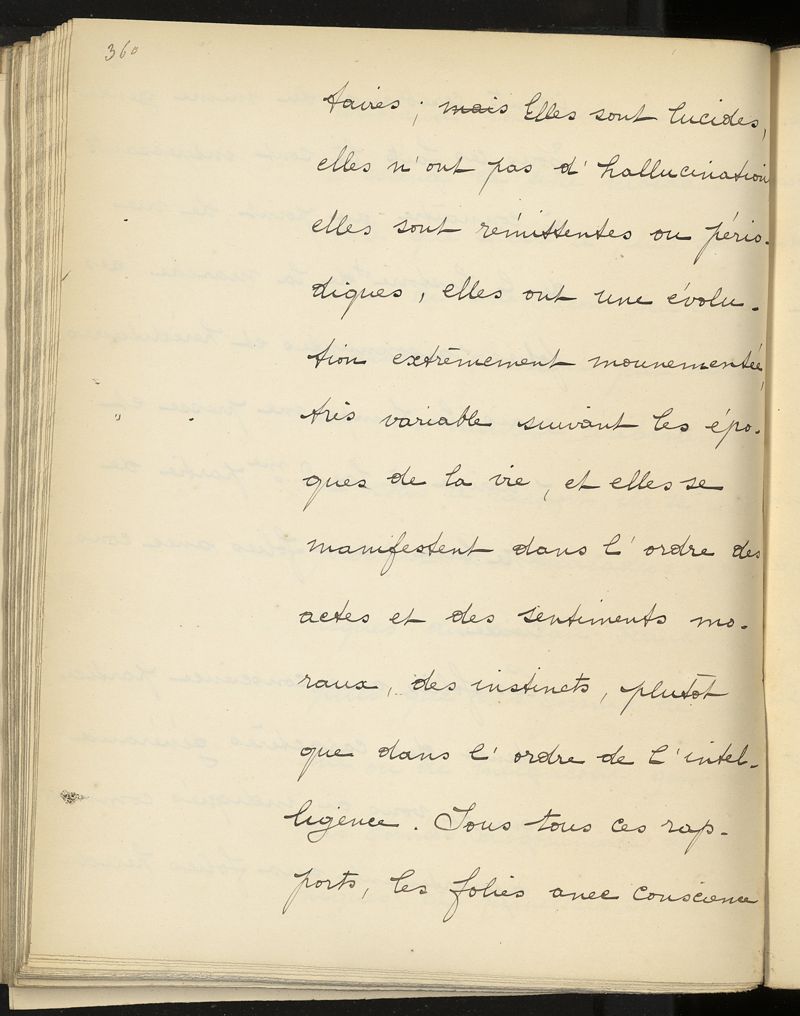 360
taires ; mais Elles sont lucides,
elles n'ont pas d'hallucination
elles sont rémittentes ou pério-
diques, elles ont une évolu-
tion extrêmement mouvementée,
très variable suivant les épo-
ques de la vie, et elles se
manifestent dans l'ordre des
actes et des sentiments mo-
raux, des instincts, plutôt
que dans l'ordre de l'intel-
ligence. Sous tous ces rap-
ports, les folies avec conscience